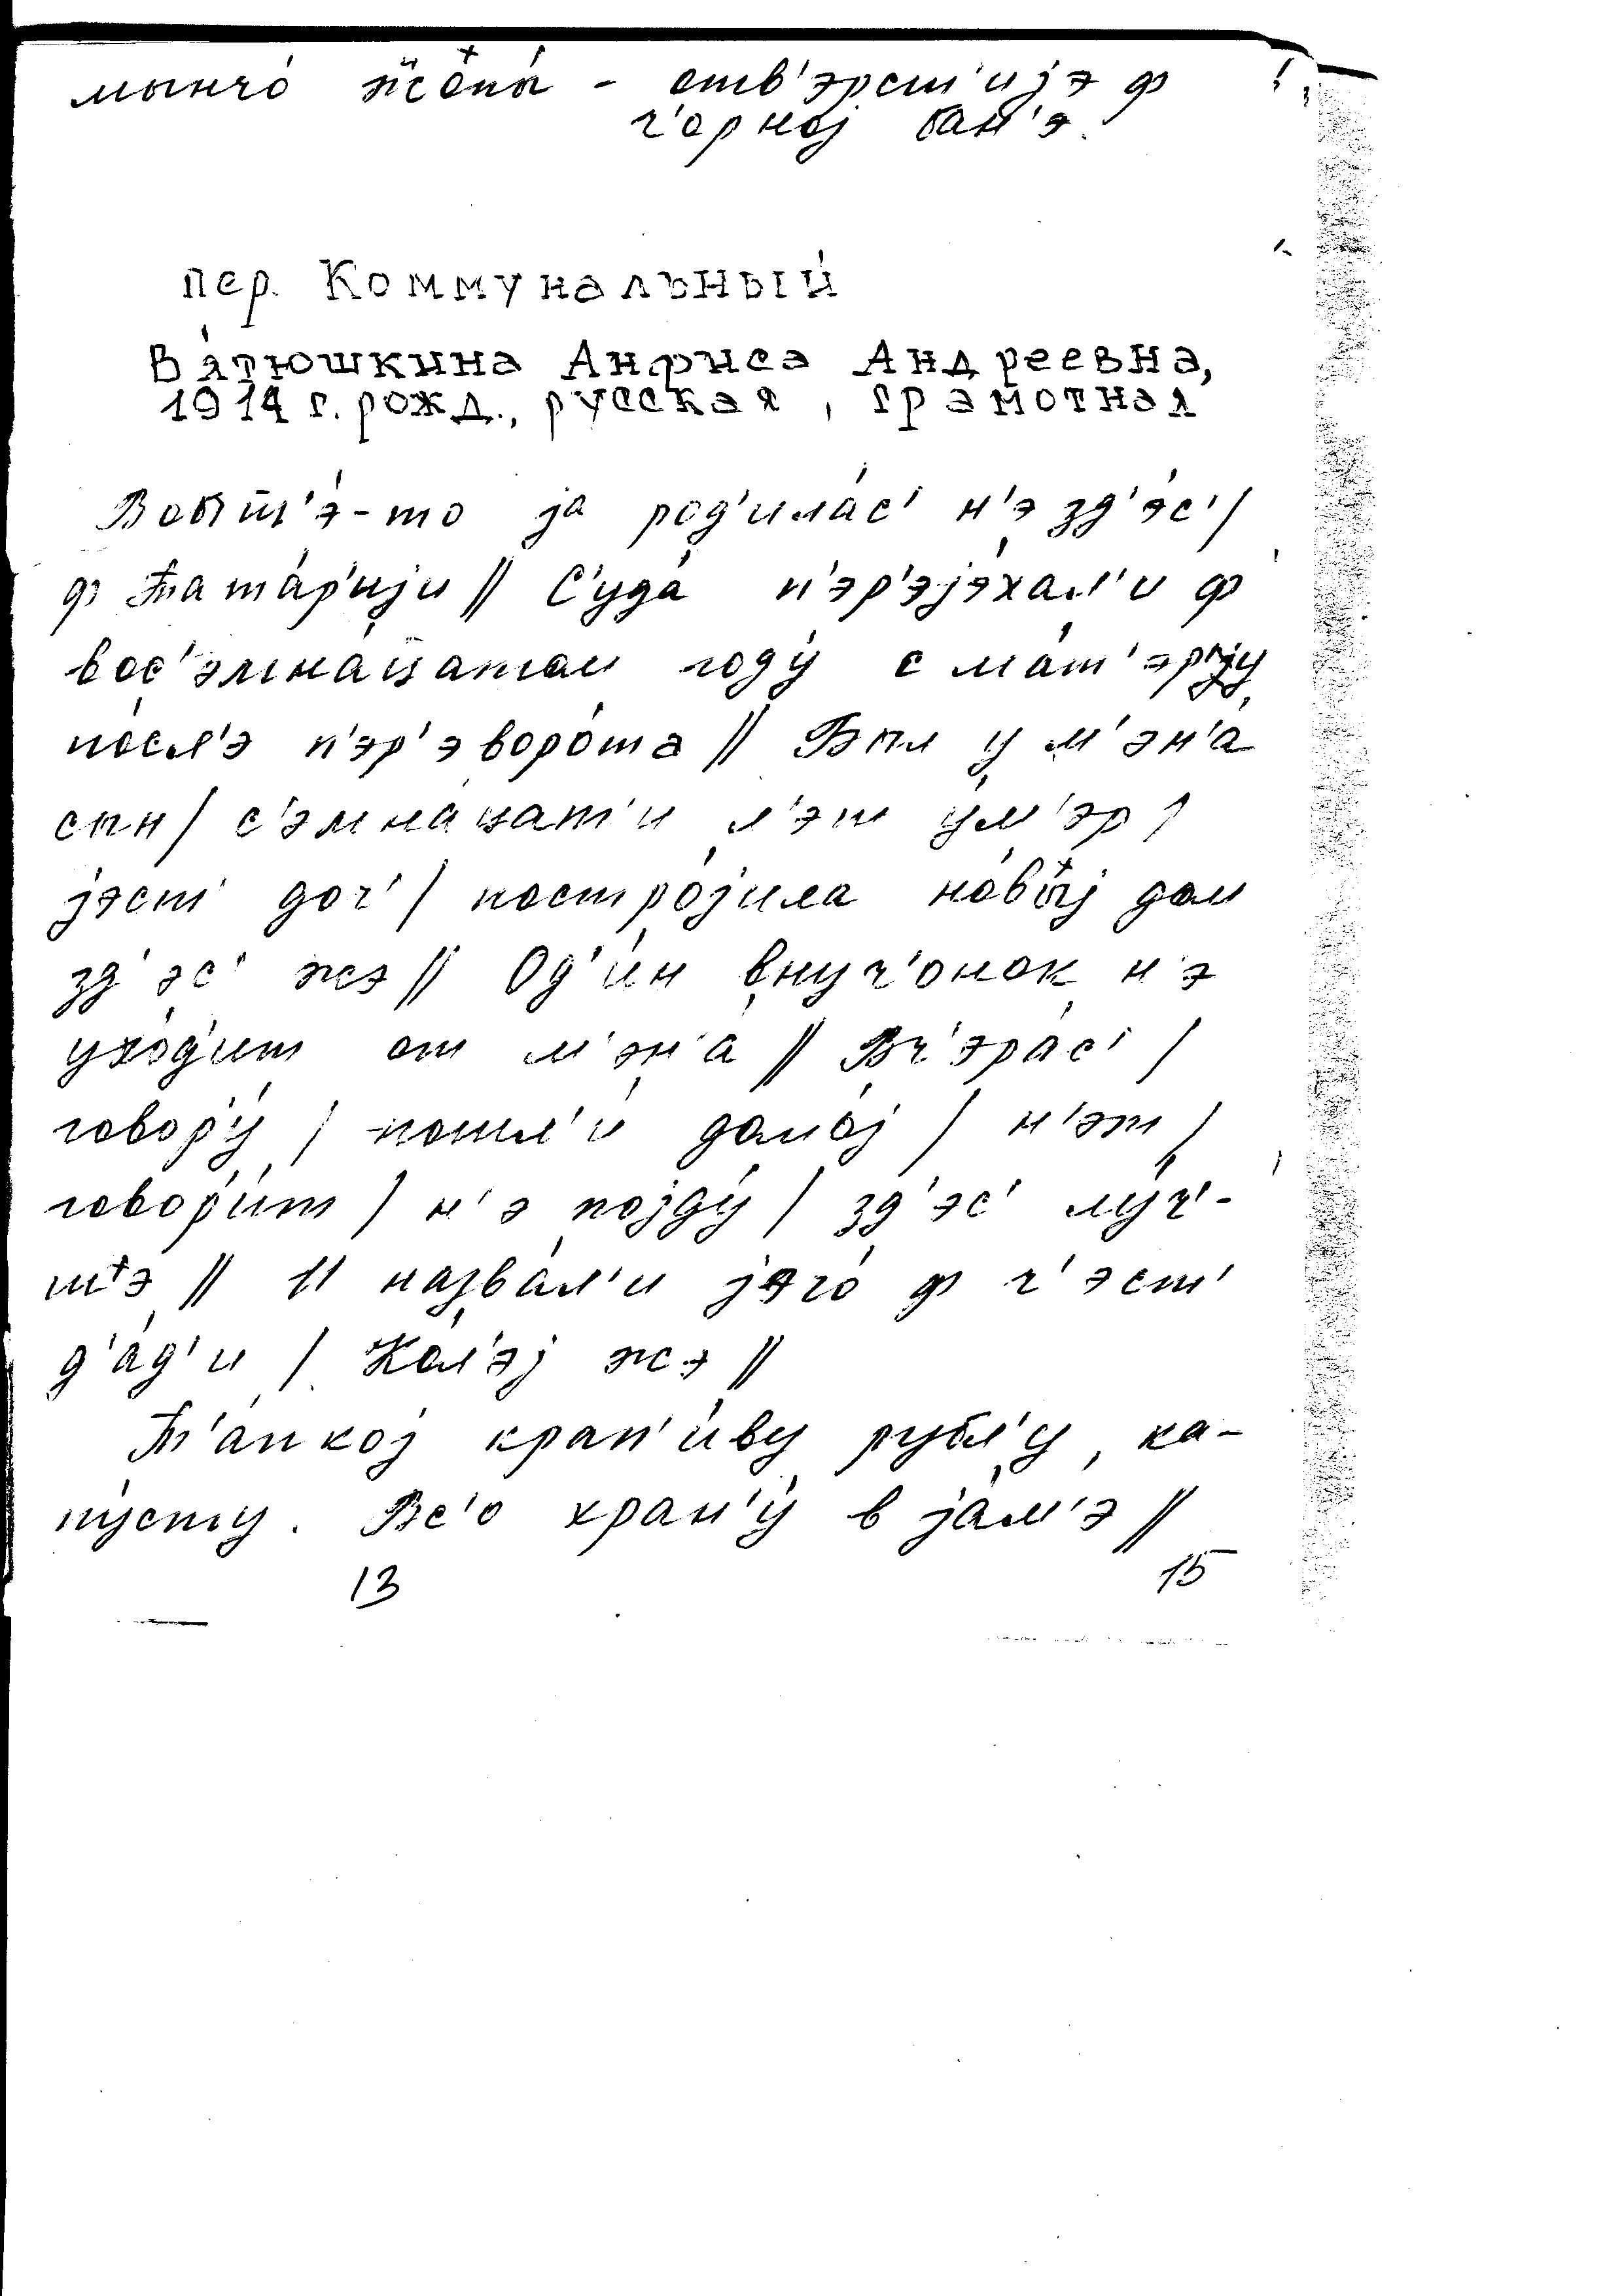 мынчо́ - отв'э́рст'ијэ ф
ч'о́рној бан'э.
пер. Коммунальный
Вя́тюшкина Анфиса Андреевна,
1914 г. рожд., русская, грамотная
Вопш'э́-то ја род'ила́с' н'э зд'э́с' /
ф Тата́р'ији // С'уда́ п'эр'эјэ́хал'и ф
вос'эмна́цатом году́ с ма́т'эр'ју
по́сл'э п'эр'эворо́та // Был у м'эн'а́
сын / с'эмна́цат'и л'эт у́м'эр /
јэст' доч' / постро́јила но́выј дом
зд'эс' жэ // Од'и́н внуч'о́нок н'э
ухо́д'ит от м'эн'а́ // Вч'эра́с' /
говор'у́ / пошл'и́ домо́ј / н'эт /
говор'и́т / н'э појду́ / зд'эс' лу́ч'-
шэ // И назва́л'и јэго́ ф ч'эст'
д'а́д'и / Ко́л'эј жэ //
Т'а́пкој крап'и́ву рубл'у́, ка-
пу́сту. Вс'о хран'у́ в ја́м'э //
13
15